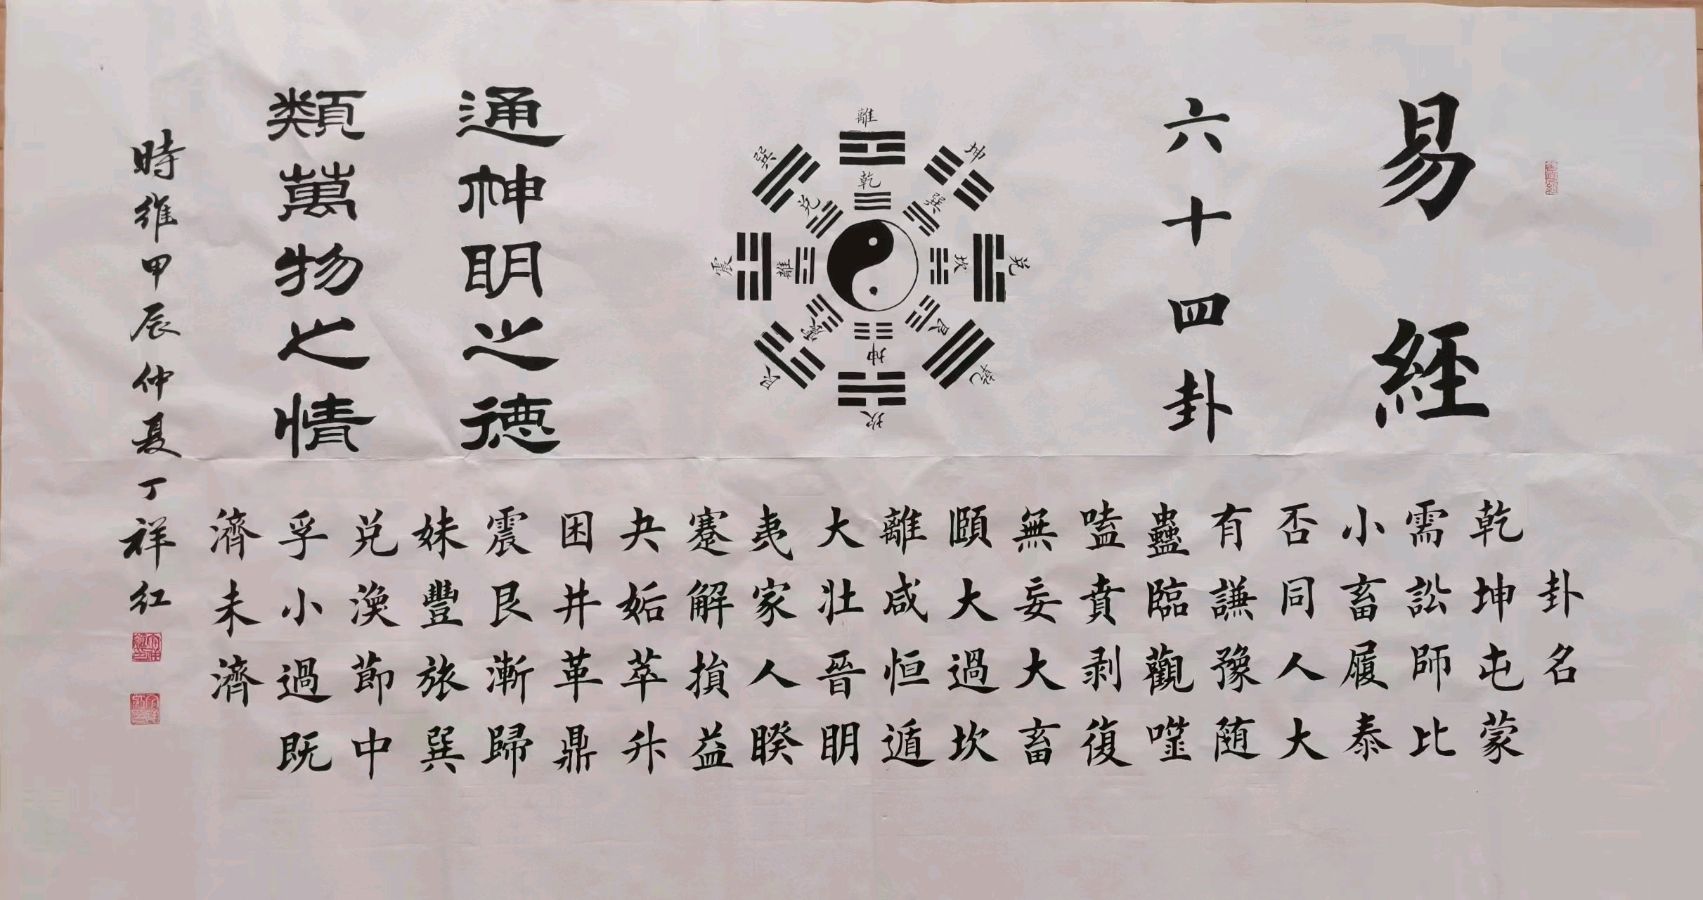 易經
六十四卦
離
坤
兑
乾
坎
艮
震
巽
乾
巽
坎
艮
坤
震
離
兑
通神明之德
類萬物之情
卦名
乾坤屯蒙
需訟師比
小畜履泰
否同人大
有謙豫随
蠱臨觀噬
嗑賁剥復
無妄大畜
頤大過坎
離咸恒遁
大壯晉明
夷家人睽
蹇解損益
夬姤萃升
困井革鼎
震艮漸歸
妹豐旅巽
兑渙節中
孚小過既
濟未濟
時維甲辰仲夏丁祥红